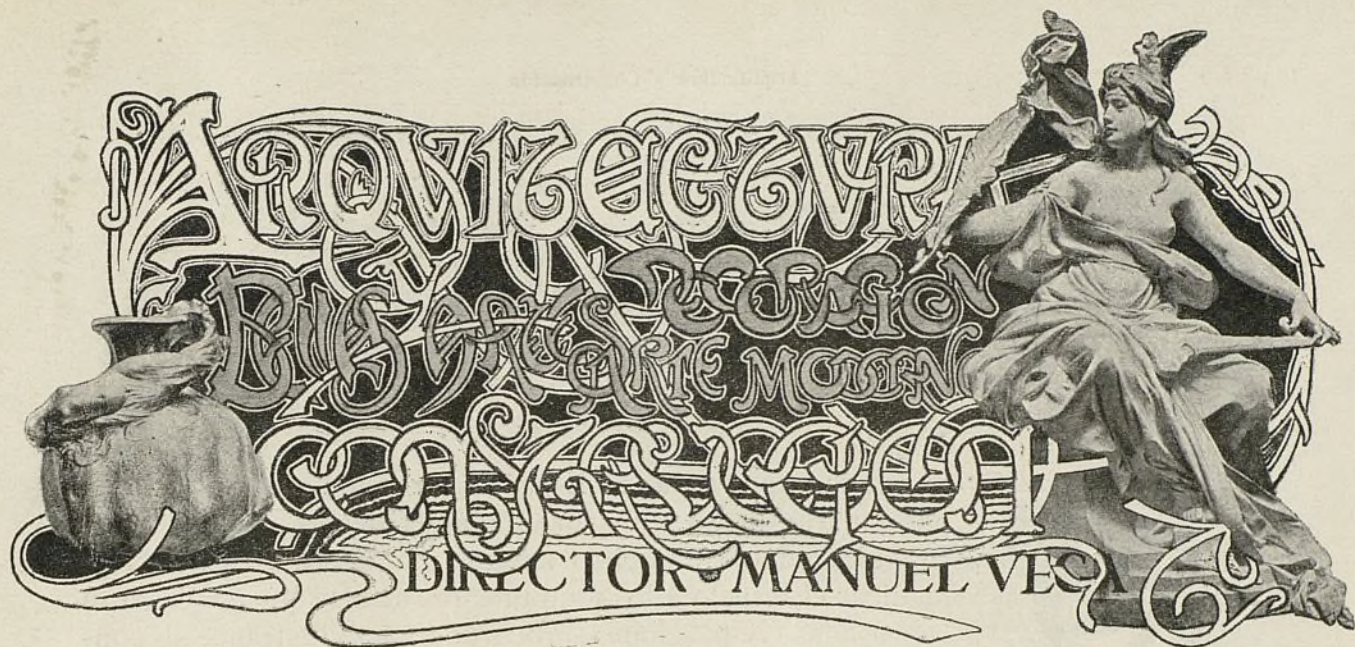 ARQVITECTVRA
BELLAS ARTES DECORACION
ARTE MODERNO
CONSTRUCCIÓN
DIRECTOR · MANUEL VEGA